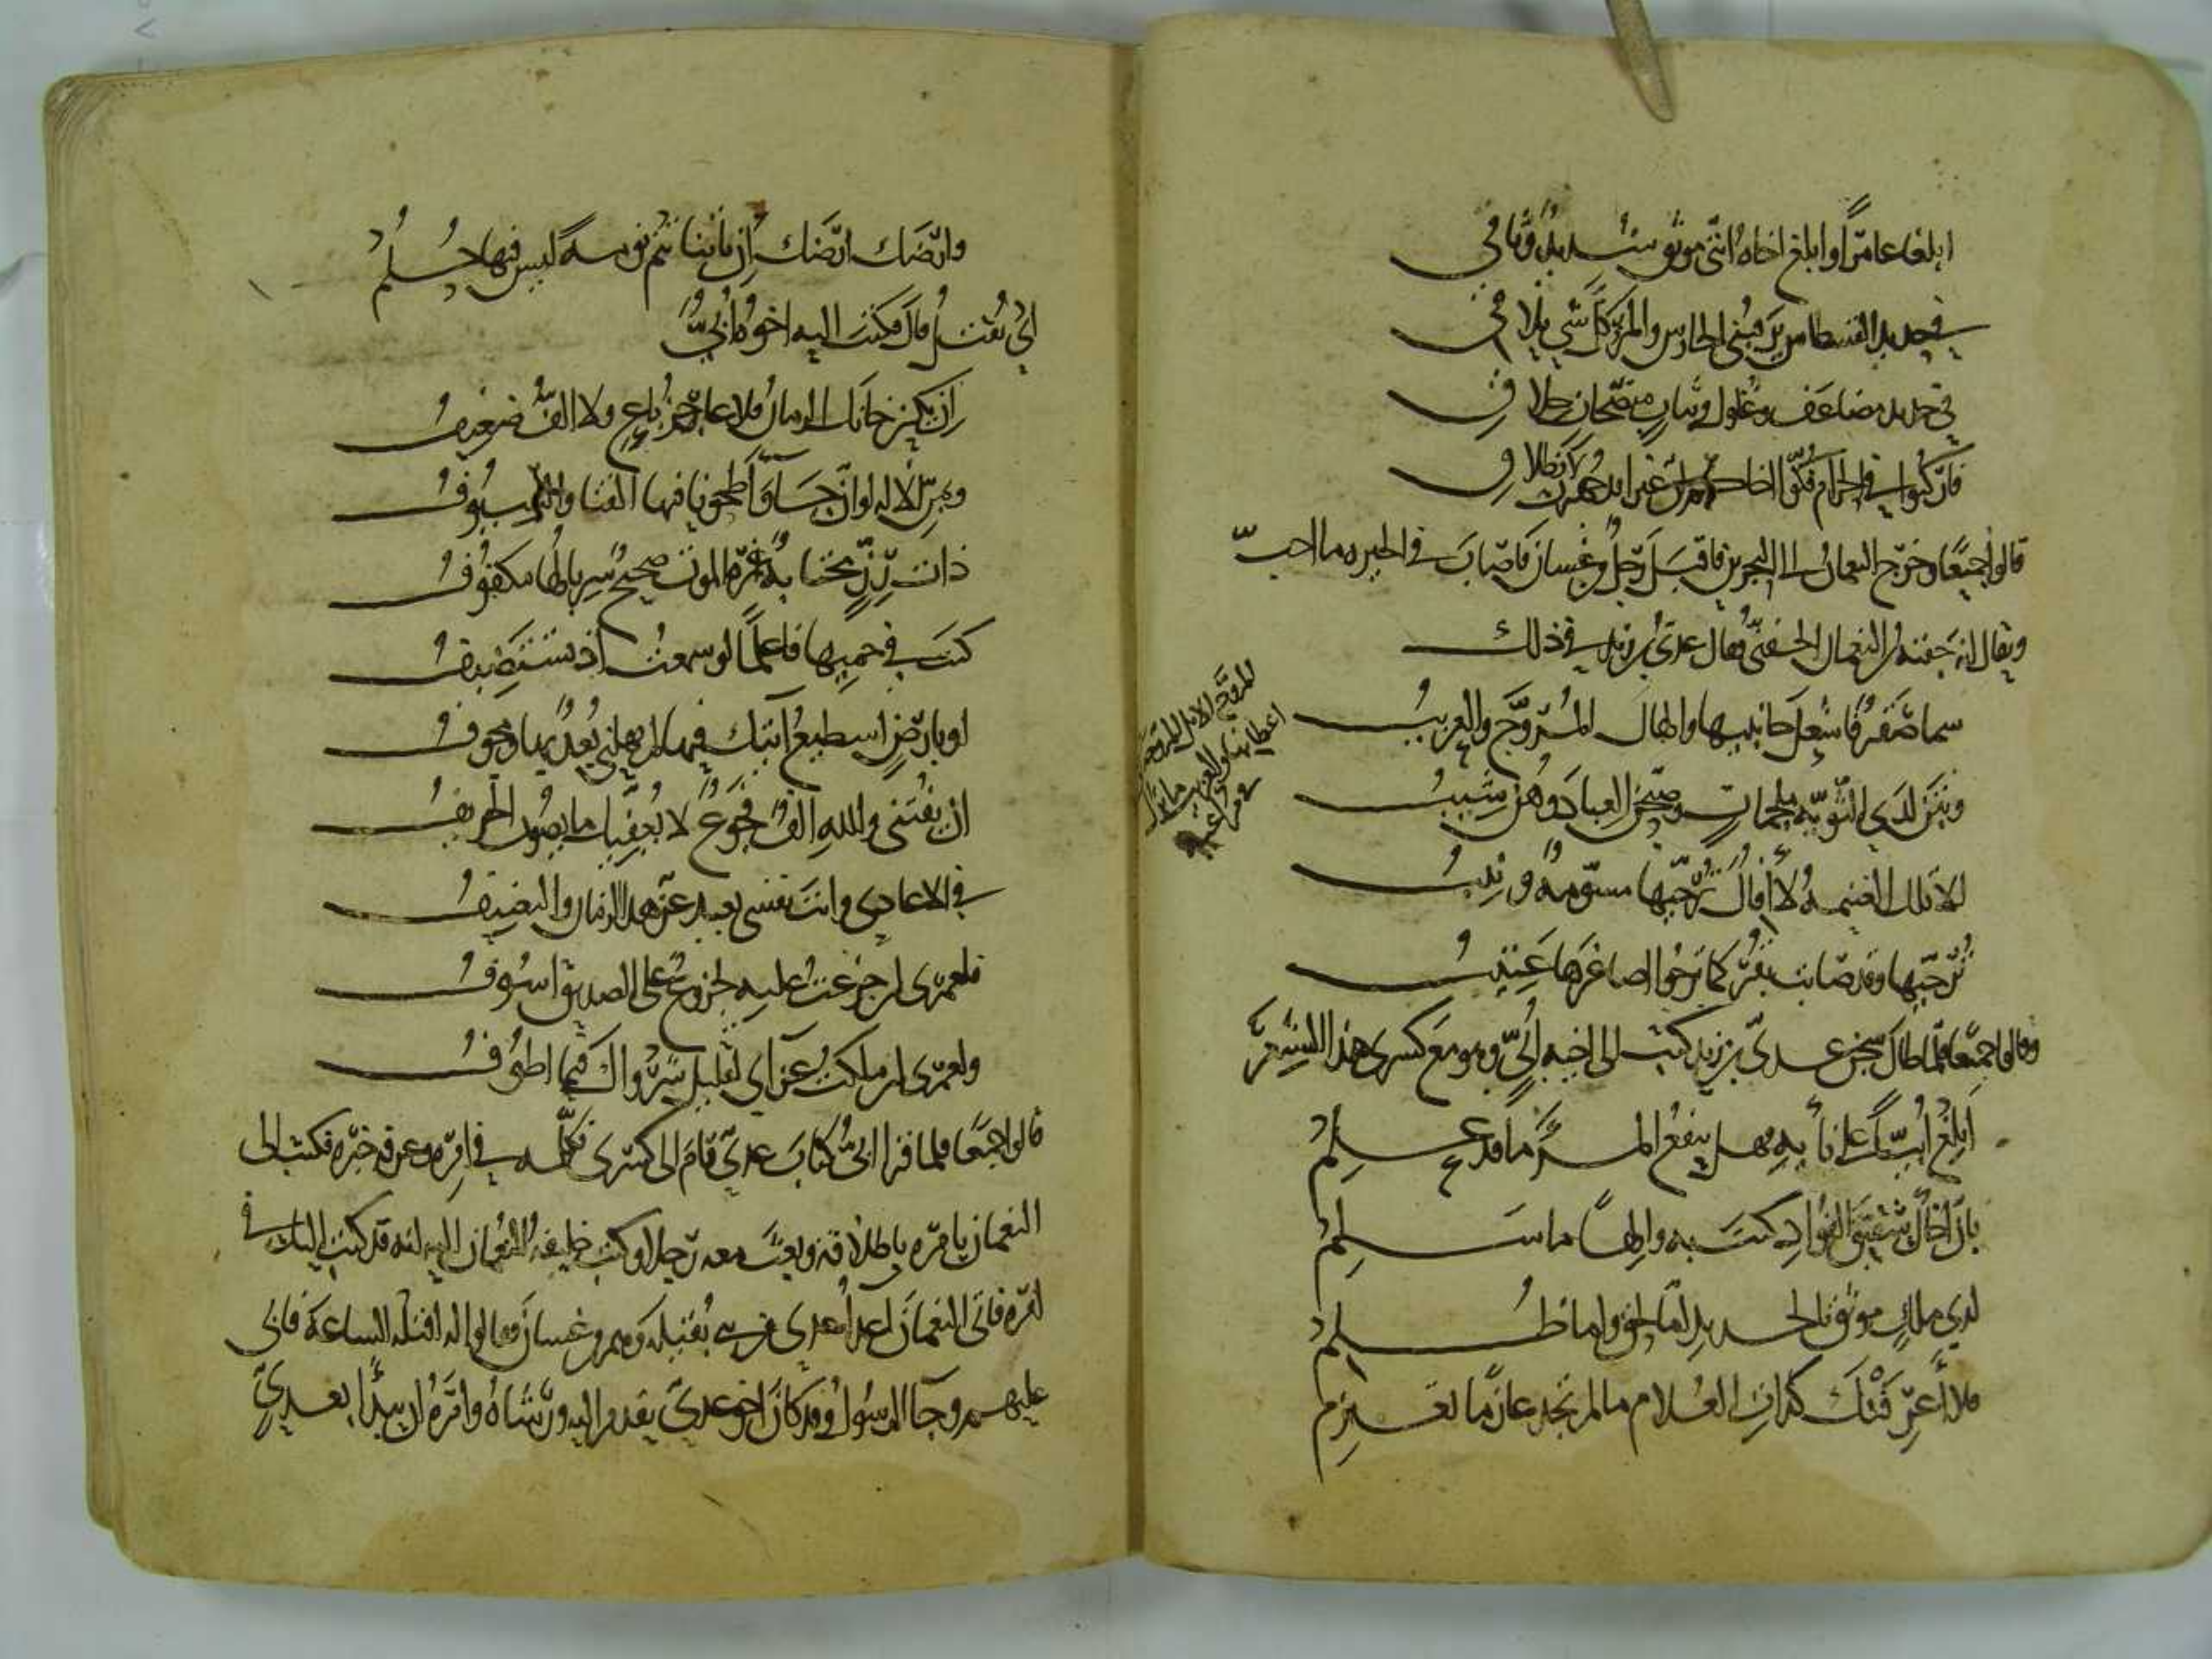 ابلغا عامرًا وابلغ اخاه انني موثق شديد وثاقي
في حديد القسطاس يرقبني الحارس والمرء كل شي يلاقي
في حديد مضاعف وغلول وثياب منضحات خلاق
فاركبوا في الحرام فكوا اخاكم ان عيرا قد جهزت لانطلاق
قالوا جميعًا وخرج النعمان الى البحرين فاقبل رجل من غسان فاصاب في الحيره ما احب
ويقال انه جفنة بن النعمان الجفني فقال عدي بن زيد في ذلك
سما صقر فاشعل جانبيها والهاك المروح والعزيب
المروح الابل المروحة الى
اعطانها والعزيب ما ترك
في مراعيه
وبتن لدى الثوية ملجمات وصبحن العباد وهن شيب
الا تلك الغنيمة لا افال ترجيها مسومة ونيب
ترجيها وقد صابت بقر كما ترجوا اصاغرها عتيب
وقالوا جميعًا فلما طال سجن عدي بن زيد كتب الى اخيه ابي وهو مع كسرى هذا الشعر
ابلغ ابيًّا على نأيه وهل ينفع المرء ما قد علم
بان اخاك شقيق الفؤاد كنت به والهًا ما سلم
لدى ملك موثق بالحديد اما بحق واما ظلم
فلا اعرفنك كذات الغلام ما لم تجد عارمًا تعترم
وارضك ارضك ان تاتنا تنم نومة ليس فيها حلم
اي تقتل قال فكتب اليه اخوه ابي
ان يكن خانك الزمان فلا عاجز باع ولا الف ضعيف
ويمين الاله لو ان جأوآ طحونا فيها القنا والسيوف
ذات رز مجتابة غمرة الموت صحيح سربالها مكفوف
كنت في حميها فاعلمًا لو سمعت اذ تستضيف
او بارض اسطيع آتيك فيها لم يهلني بعد بها ومخوف
ان تفتني والله الفا فجوعا لا يعقبك ما يصوب الخريف
في الاعادي وانت نفسي بعيد عز هذا الزمان والتعنيف
فلعمري لئن جزعت عليه لجزوع على الصديق اسوف
ولعمري لئن ملكت عزاي لقليل شرواك فيما اطوف
قالوا جميعًا فلما قرا ابي كتاب عدي قام الى كسرى فكلمه في امره وعرفه خبره فكتب الى
النعمان يامره باطلاقه وبعث معه رجلا وكتب خليفة النعمان اليه انه قد كتب اليك في
امره فاتى النعمان اعدا عدي من بني بقيلة وهم من غسان فقالوا له اقتله الساعة فابى
عليهم وجآ الرسول وقد كان اخو عدي تقدم اليه ورشاه وامره ان يبدا بعدي